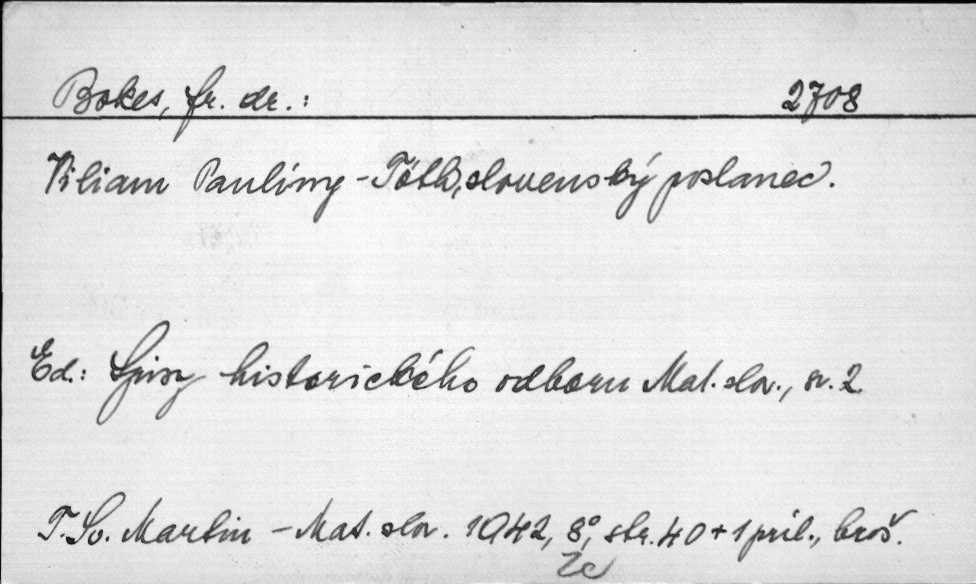 Bokes, fr. dr.: 2708
Viliam Paulíny-Tóth, slovenský poslanec.
Ed.: Spisy historického odboru Mat. slov., sv. 2
T. Sv. Martin - Mat. slov. 1942, 8°, str. 40 + 1 príl., brož.